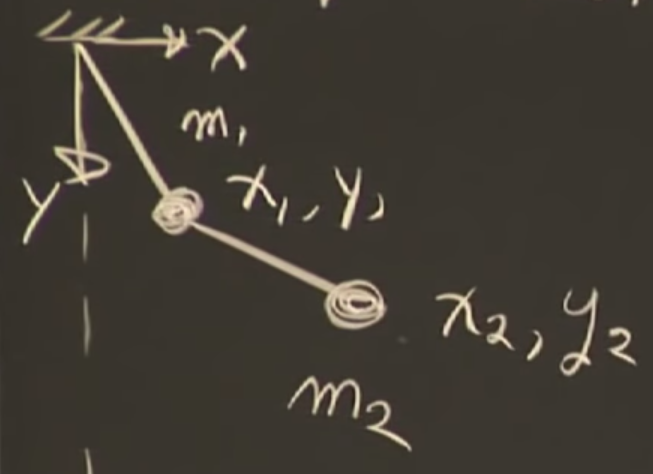 X
m₁
x₁, y₁
Y
x₂, y₂
m₂